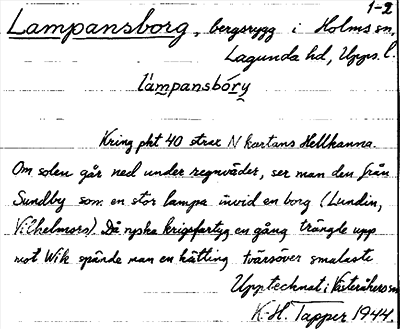 1-2
Lampansborg, bergsrygg i Holms sn,
Lagunda hd, Upps. l.
lampansbóry
Kring pkt 40 strax N kartans Hellkanna.
Om solen går ned under regnväder, ser man den från
Sundby som en stor lampa invid en borg (Lundin,
Vilhelmsro). Då ryska krigsfartyg en gång trängde upp
mot Wik spände man en kätting tvärsöver smalaste
Upptecknat i Västeråkers sn
K.-H. Tapper 1944.